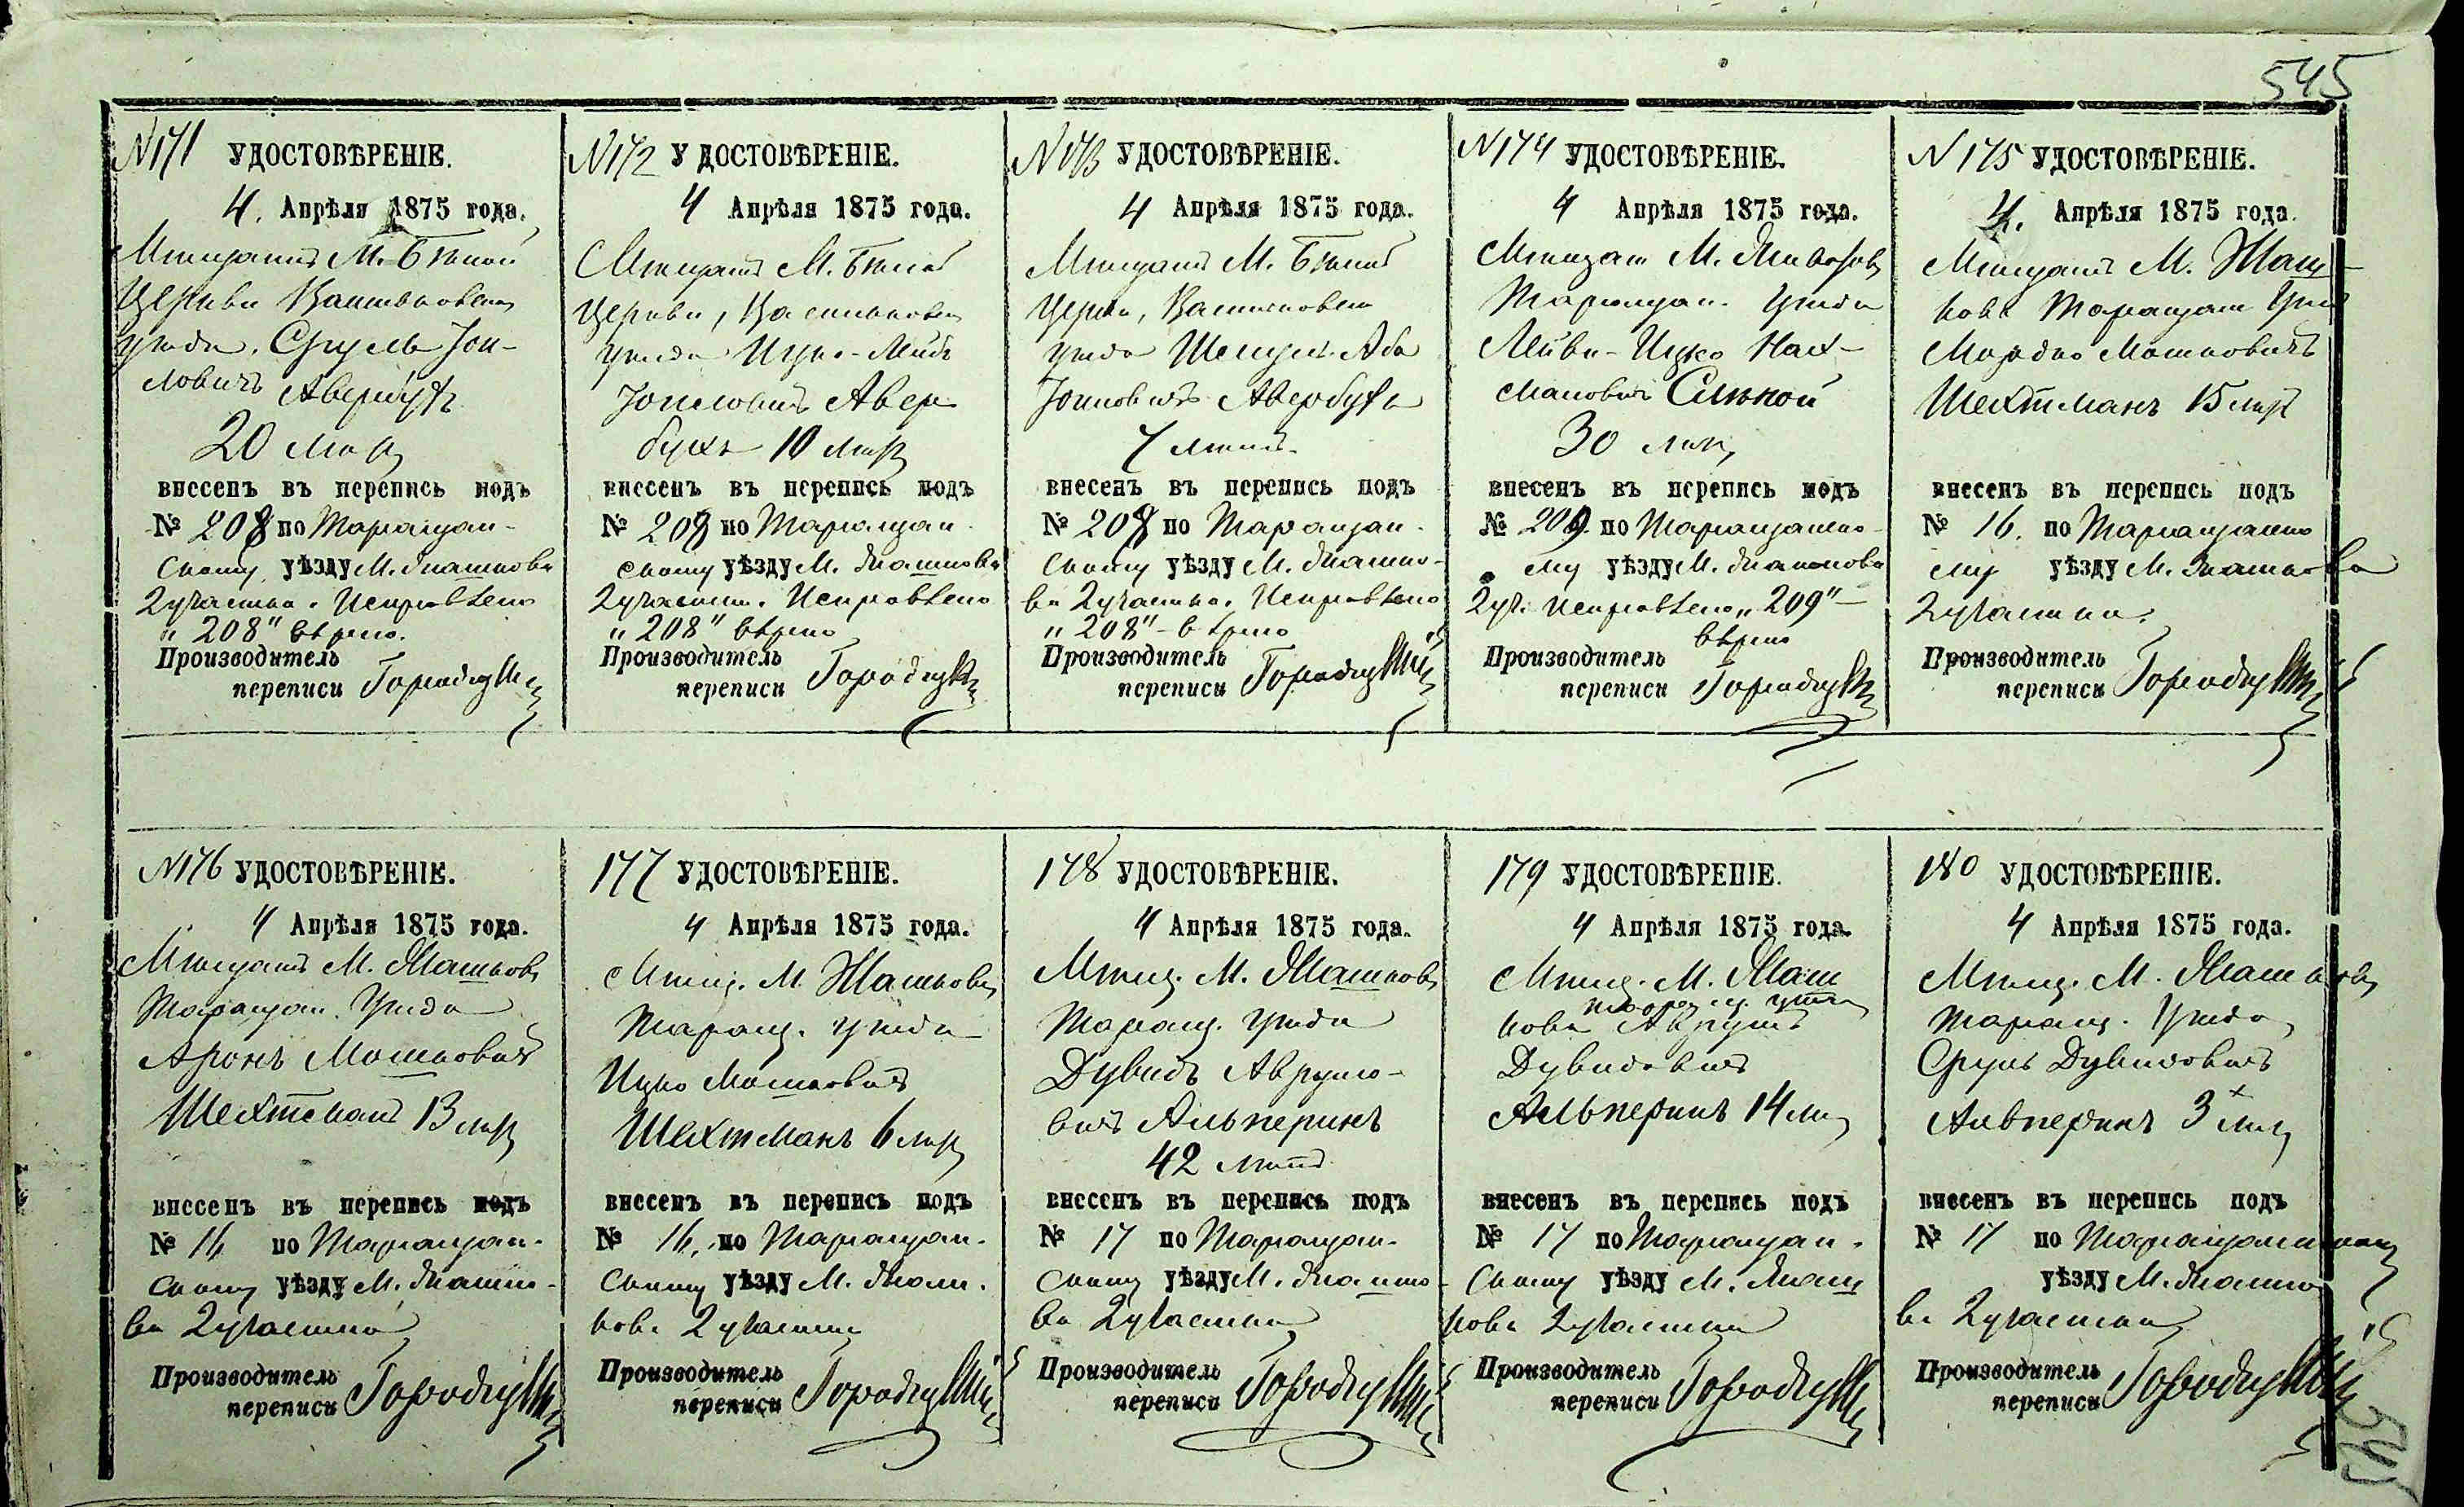 545
№171 УДОСТОВѢРЕНІЕ.
4. Апрѣля 1875 года.
Мѣщанинъ М. Бѣлой
Церкви Васильковск
уѣзда. Сруль Іоп-
ловичъ Авербухъ
20 лѣтъ
внесенъ въ перепись подъ
№ 208 по Таращан-
скому уѣзду М. Жашкова
2 участка. Исправлено
„208" вѣрно.
Производитель
переписи Городецкій
№172 УДОСТОВѢРЕНІЕ.
4 Апрѣля 1875 года.
Мѣщанинъ М. Бѣлой
Церкви, Васильковск
уѣзда Ицко-Лейбъ
Авер
бухъ 10 лѣтъ
внесенъ въ перепись подъ
№ 208 по Таращан
скому уѣзду М. Жашкова
2 участка. Исправлено
„208" вѣрно
Производитель
переписи Городецкій
№173 УДОСТОВѢРЕНІЕ.
4 Апрѣля 1875 года.
Мѣщанинъ М. Бѣлой
Церкви, Васильковск
уѣзда Аба
Авербухъ
7 лѣтъ
внесенъ въ перепись подъ
№ 208 по Таращан-
скому уѣзду М. Жашко-
ва 2 участка. Исправлено
„208" - вѣрно
Производитель
переписи Городецкій
№174 УДОСТОВѢРЕНІЕ.
4 Апрѣля 1875 года.
Мѣщан М. Жашков
Таращан. уѣзда
Лейба-Ицко Нах-
мановичъ Слѣпой
30 лѣтъ
внесенъ въ перепись подъ
№ 209 по Таращанско-
му уѣзду М. Жашкова
2 уч. Исправлено „209" -
вѣрно
Производитель
переписи Городецкій
№ 175 УДОСТОВѢРЕНІЕ.
4. Апрѣля 1875 года.
Мѣщанинъ М. Жаш-
кова Таращан уѣзд
Мордко Мошковичъ
Шехтманъ 15 лѣтъ
внесенъ въ перепись подъ
№ 16. по Таращанско
му уѣзду М. Жашкова
2 участка.
Производитель
переписи Городецкій
№176 УДОСТОВѢРЕНІЕ.
4 Апрѣля 1875 года.
Мѣщанинъ М. Жашков
Таращан. уѣзда
Аронъ Мошковичъ
Шехтманъ 13 лѣтъ
внесенъ въ перепись подъ
№ 16 по Таращан-
скому уѣзду М. Жашко-
ва 2 участка
Производитель
переписи Городецкій
177 УДОСТОВѢРЕНІЕ.
4 Апрѣля 1875 года.
Мѣщ. М. Жашкова
Таращ. уѣзда
Ицко Мошковичъ
Шехтманъ 6 лѣтъ
внесенъ въ перепись подъ
№ 16, по Таращан-
скому уѣзду М. Жаш.
кова 2 участка
Производитель
переписи Городецкій
178 УДОСТОВѢРЕНІЕ.
4 Апрѣля 1875 года.
Мѣщ. М. Жашков
Таращ. уѣзда
Дувидъ Аврумо-
вичъ Альперинъ
42 лѣтъ
внесенъ въ перепись подъ
№ 17 по Таращан-
скому уѣзду М. Жашко-
ва 2 участка
Производитель
переписи Городецкій
179 УДОСТОВѢРЕНІЕ.
4 Апрѣля 1875 года.
Мѣщ. М. Жаш
Таращ. уѣзда
кова Аврумъ
Дувидовичъ
Альперинъ 14 лѣтъ
внесенъ въ перепись подъ
№ 17 по Таращан-
скому уѣзду М. Жаш
кова 2 участка
Производитель
переписи Городецкій
180 УДОСТОВѢРЕНІЕ.
4 Апрѣля 1875 года.
Мѣщ. М. Жашков
Таращ. уѣзда
Сруль Дувидовичъ
Альперинъ 3 лѣтъ
внесенъ въ перепись подъ
№ 17 по Таращанскому
уѣзду М. Жашко
ва 2 участка
Производитель
переписи Городецкій
545